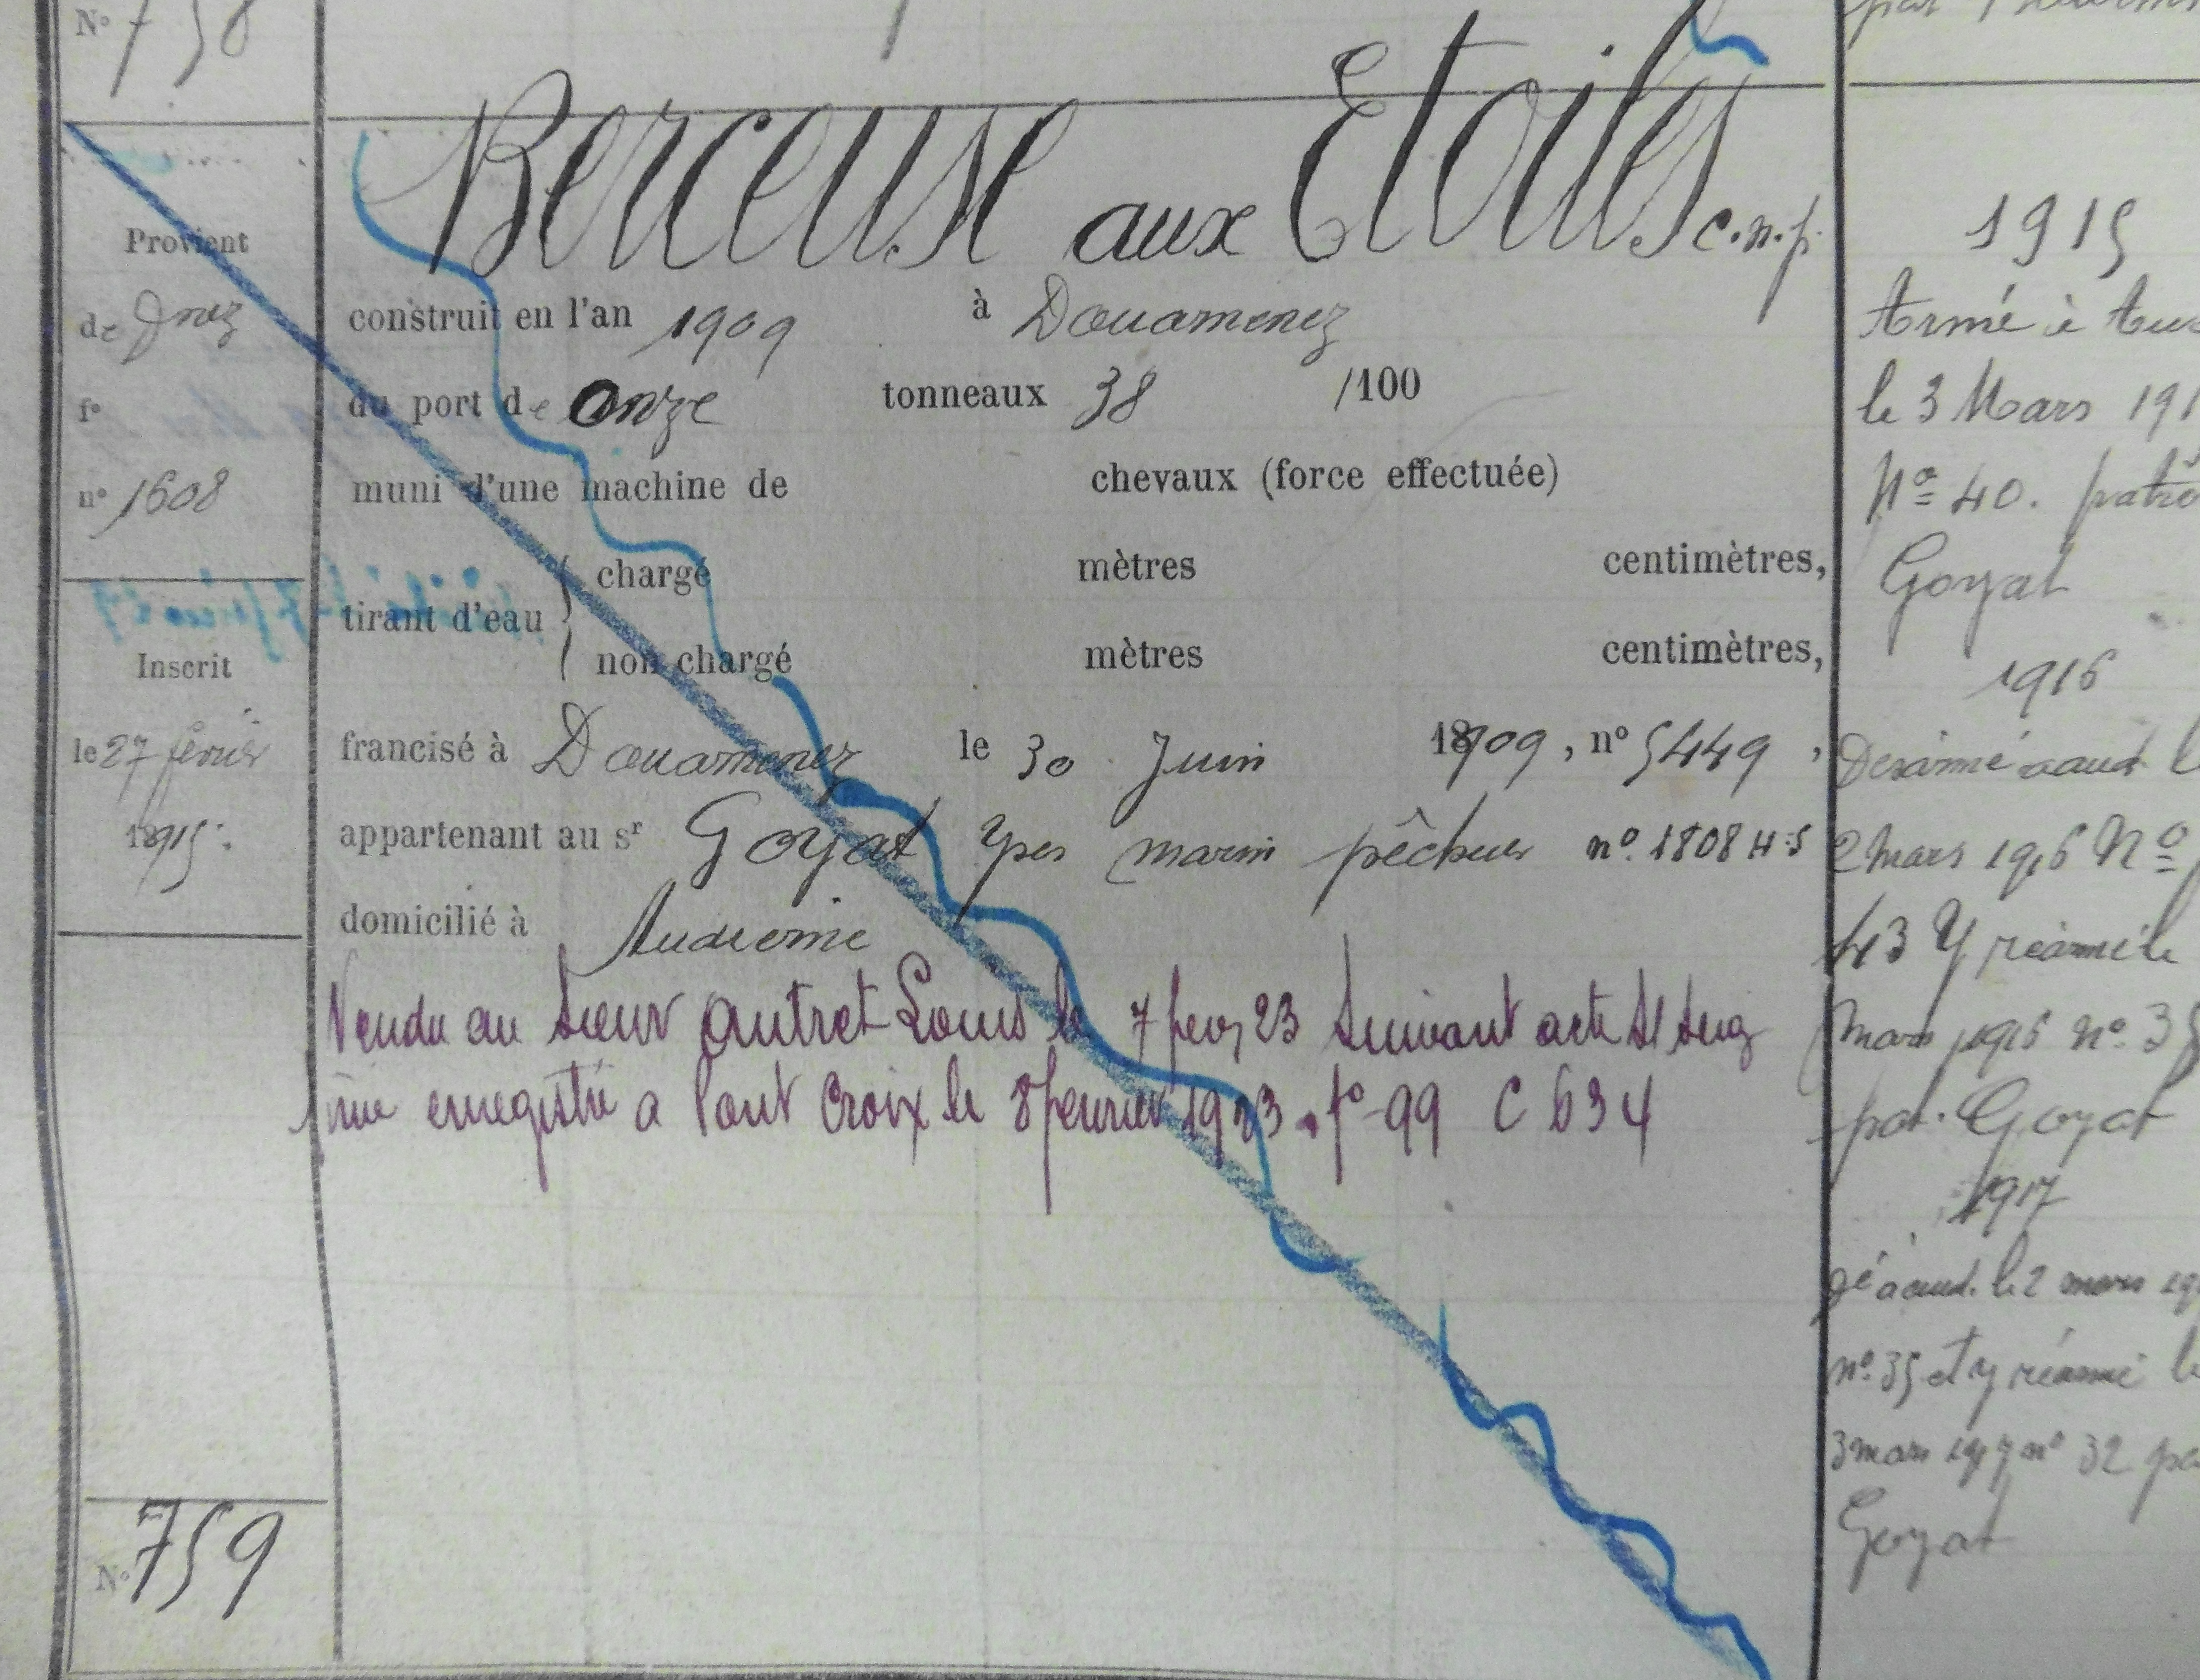 N° 758
Berceuse aux Etoiles c.n.p.
Provient
de Dnez
f°
n° 1608
Inscrit
le 27 février
18915.
construit en l'an 1909 à Douarnenez
du port de Onze tonneaux 38 /100
muni d'une machine de chevaux (force effectuée)
tirant d'eau { chargé mètres centimètres,
non chargé mètres centimètres,
francisé à Douarnenez le 30 Juin 1909, n° 5449,
appartenant au sr Goyat Yves marin pêcheur n° 1808 H.S
domicilié à Audierne
Vendu au sieur Autret Louis le 7 fev 23 suivant acte S/ seig
privé enregistré a Pont Croix le 8 février 1923. f° 99 C 634
N° 759
par
1915
Armé à Au
le 3 Mars 191
N° 40. patro
Goyat
1916
Desarmé a aud l
2 mars 1916 N°
43 Y réarmé le
mars 1916 n° 35
par Goyat
1917
gé à aud. le 2 mars 19
n° 35 et y réarmé l
3 mars 1917 n° 32 pa
Goyat